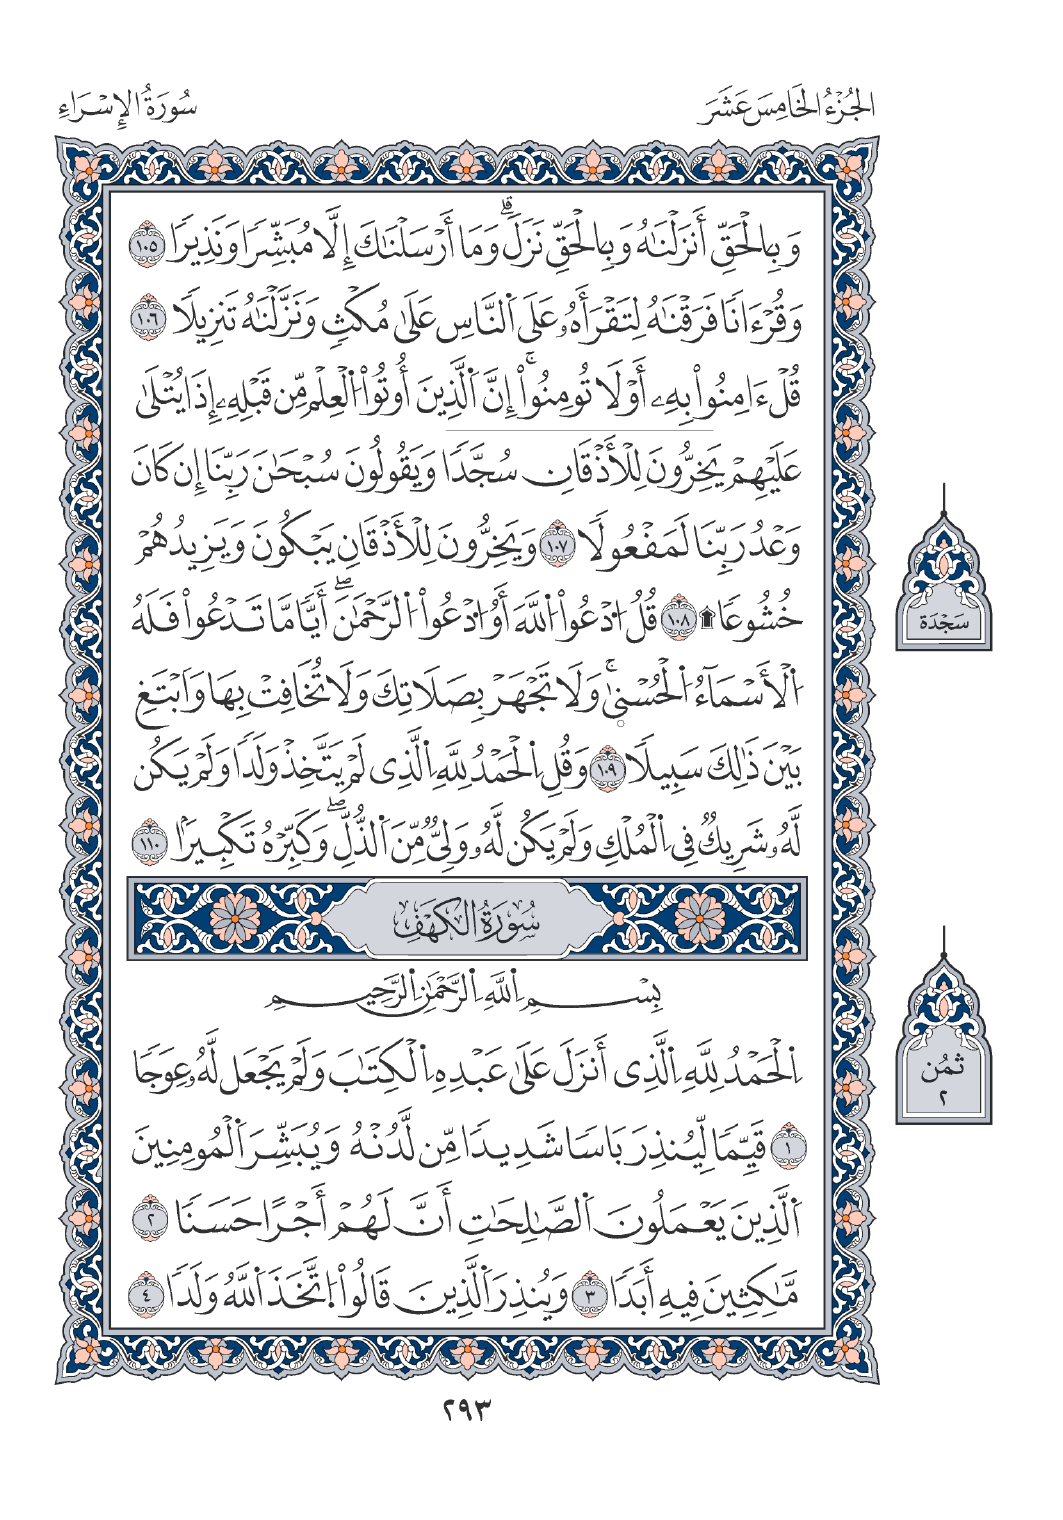 الجُزْءُ الخَامِسَ عَشَرَ
سُورَةُ الإِسْرَاءِ
وَبِالْحَقِّ أَنزَلْنَٰهُ وَبِالْحَقِّ نَزَلَۗ وَمَا أَرْسَلْنَٰكَ إِلَّا مُبَشِّرٗا وَنَذِيرٗا ١٠٥
وَقُرْءَانٗا فَرَقْنَٰهُ لِتَقْرَأَهُۥ عَلَى ٱلنَّاسِ عَلَىٰ مُكْثٖ وَنَزَّلْنَٰهُ تَنزِيلٗا ١٠٦
قُلْ ءَامِنُواْ بِهِۦ أَوْ لَا تُومِنُواْۚ إِنَّ ٱلَّذِينَ أُوتُواْ ٱلْعِلْمَ مِن قَبْلِهِۦ إِذَا يُتْلَىٰ
عَلَيْهِمْ يَخِرُّونَ لِلْأَذْقَانِ سُجَّدٗا وَيَقُولُونَ سُبْحَٰنَ رَبِّنَا إِن كَانَ
وَعْدُ رَبِّنَا لَمَفْعُولٗا ١٠٧ وَيَخِرُّونَ لِلْأَذْقَانِ يَبْكُونَ وَيَزِيدُهُمْ
خُشُوعٗا ۩ ١٠٨ قُلُ ٱدْعُواْ ٱللَّهَ أَوُ ٱدْعُواْ ٱلرَّحْمَٰنَۖ أَيّٗا مَّا تَدْعُواْ فَلَهُ
ٱلْأَسْمَآءُ ٱلْحُسْنَىٰۚ وَلَا تَجْهَرْ بِصَلَاتِكَ وَلَا تُخَافِتْ بِهَا وَٱبْتَغِ
بَيْنَ ذَٰلِكَ سَبِيلٗا ١٠٩ وَقُلِ ٱلْحَمْدُ لِلَّهِ ٱلَّذِي لَمْ يَتَّخِذْ وَلَدٗا وَلَمْ يَكُن
لَّهُۥ شَرِيكٞ فِي ٱلْمُلْكِ وَلَمْ يَكُن لَّهُۥ وَلِيّٞ مِّنَ ٱلذُّلِّۖ وَكَبِّرْهُ تَكْبِيرَۢا ١١٠
سُورَةُ الكَهْفِ
بِسْمِ ٱللَّهِ ٱلرَّحْمَٰنِ ٱلرَّحِيمِ
ٱلْحَمْدُ لِلَّهِ ٱلَّذِي أَنزَلَ عَلَىٰ عَبْدِهِ ٱلْكِتَٰبَ وَلَمْ يَجْعَل لَّهُۥ عِوَجٗا
١ قَيِّمٗا لِّيُنذِرَ بَاسٗا شَدِيدٗا مِّن لَّدُنْهُ وَيُبَشِّرَ ٱلْمُومِنِينَ
ٱلَّذِينَ يَعْمَلُونَ ٱلصَّٰلِحَٰتِ أَنَّ لَهُمْ أَجْرًا حَسَنٗا ٢
مَّٰكِثِينَ فِيهِ أَبَدٗا ٣ وَيُنذِرَ ٱلَّذِينَ قَالُواْ ٱتَّخَذَ ٱللَّهُ وَلَدٗا ٤
سَجْدَة
ثمُن
٢
٢٩٣